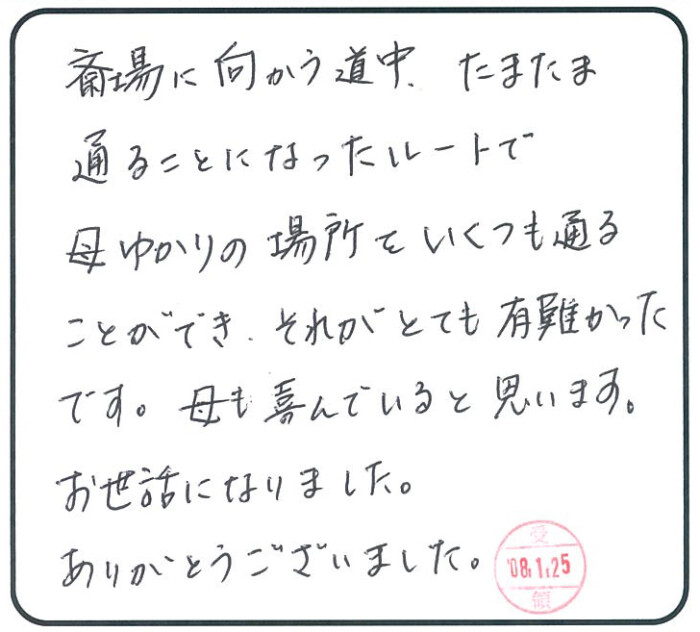 斎場に向かう道中、たまたま
通ることになったルートで
母ゆかりの場所をいくつも通る
ことができ、それがとても有難かった
です。母も喜んでいると思います。
お世話になりました。
ありがとうございました。
受
'08.1.25
領